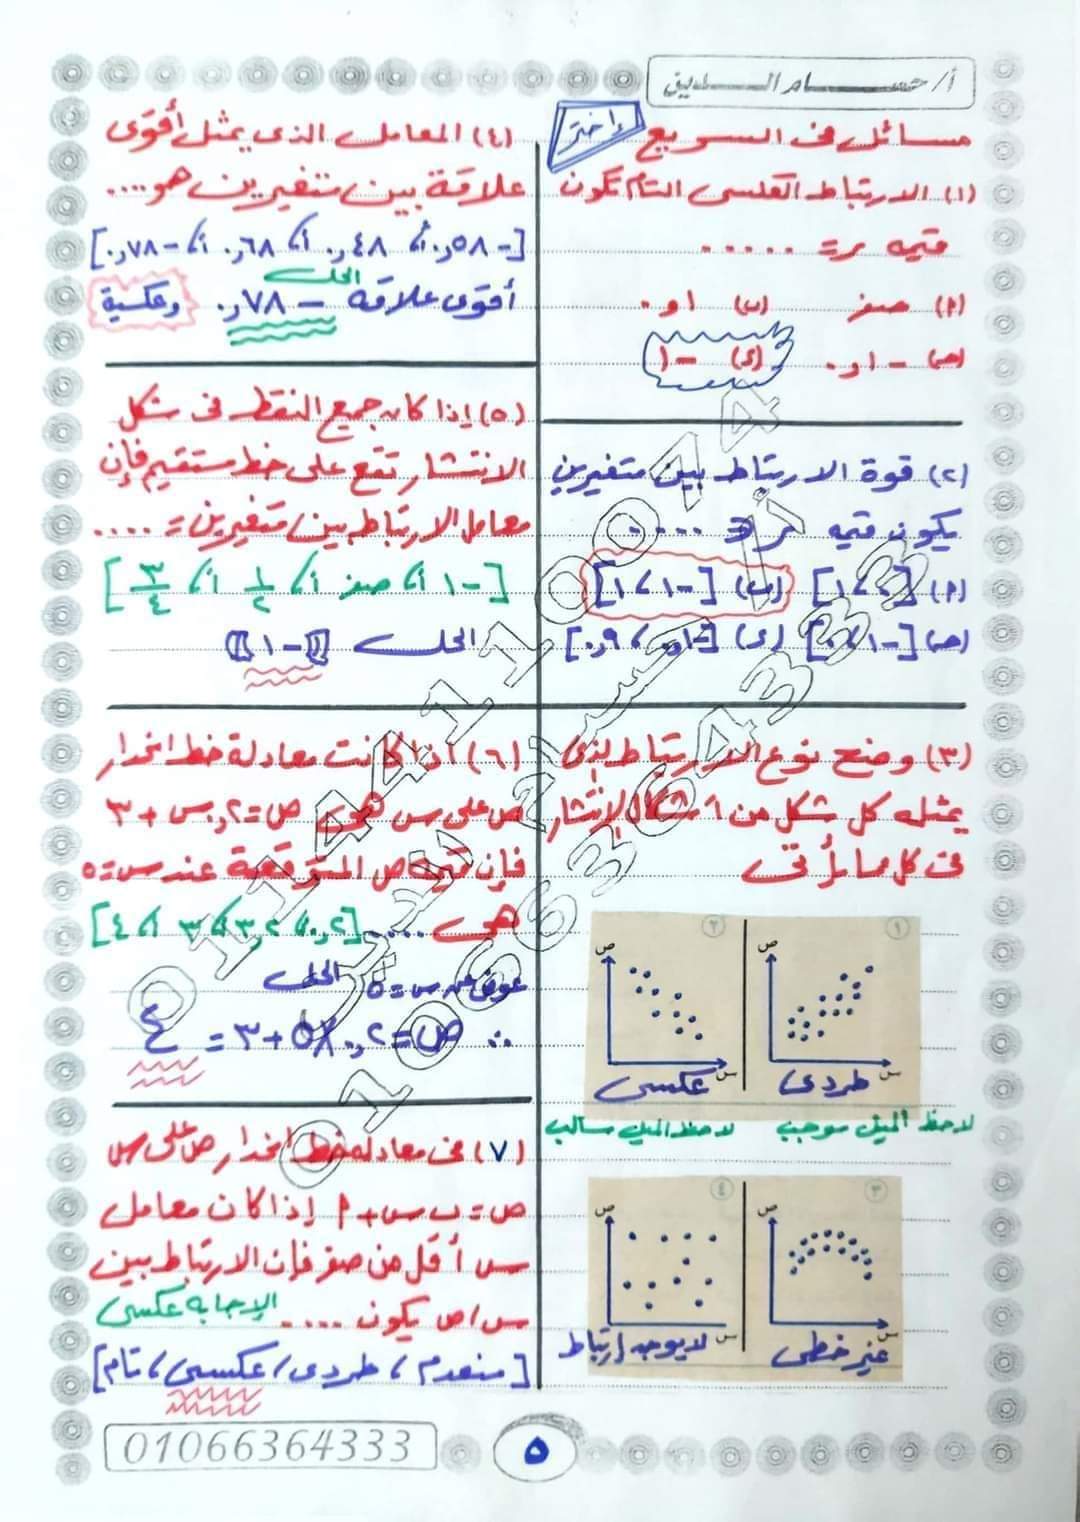 أ/ حسام الصديق
مسائل فى السريع إختر
(١) الارتباط العكسى التام تكون
قيمه ر = .....
(٢) صفر (ب) ١و٠
(حـ) -١و٠ (د) -١
(٢) قوة الارتباط بين متغيرين
يكون قيمه ر ∋ .....
(٢) [٠،١] (ب) [-١،١]
(حـ) [-١،٠] (د)
(٣) وضح نوع الارتباط الذى
يمثله كل شكل من أشكال الإنتشار
فى كل مما يأتى
١ ص س طردى
٢ ص س عكسى
لاحظ الميل موجب
لاحظ الميل سالب
٣ ص س غير خطى
٤ ص س لا يوجد إرتباط
(٤) المعامل الذى يمثل أقوى
علاقة بين متغيرين هو....
[-٠,٥٨ أ، ٠,٤٨ أ، ٠,٦٨ أ، -٠,٧٨]
الحل
أقوى علاقة -٠,٧٨ وعكسية
(٥) إذا كان جميع النقط فى شكل
الانتشار تقع على خط مستقيم فإن
معامل الارتباط بين متغيرين = ....
[-١ أ، صفر أ، ١/٢ أ، ٣/٤]
الحل [-١]
(٦) اذا كانت معادلة خط انحدار
ص على س هى ص = ٠,٢ س + ٣
فإن قيمة ص المتوقعة عند س = ٥
هى .... [٠,٢، ٣,٢، ٣، ٤]
الحل
عوض عن س = ٥
∴ ص = ٠,٢ × ٥ + ٣ = ٤
(٧) فى معادلة خط انحدار ص على س
ص = ب س + أ إذا كان معامل
س أقل من صفر فإن الارتباط بين
س، ص يكون .... الإجابه عكسى
[منعدم، طردى، عكسى، تام]
٥
01066364333
01144110044
أ/ حسام الصديق
01066364333